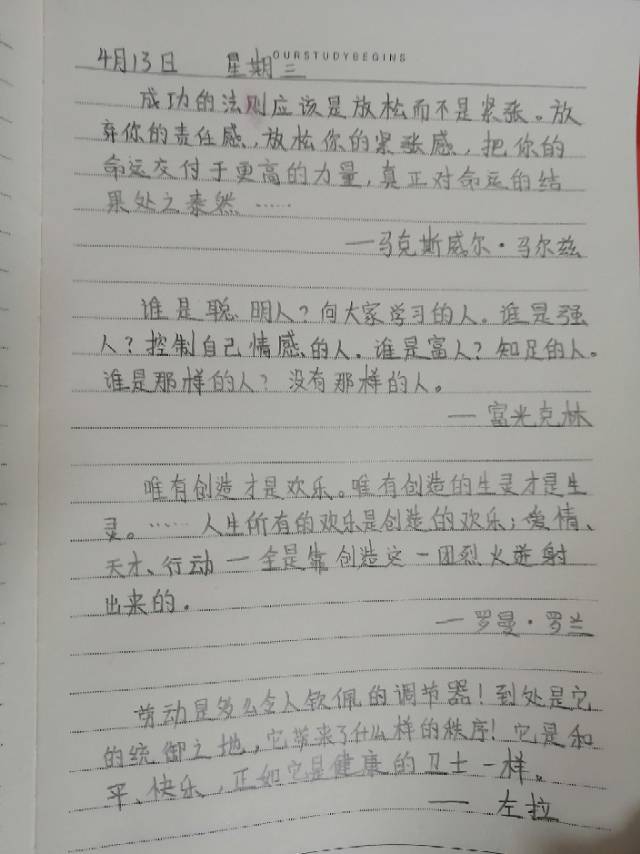 OURSTUDYBEGINS
4月13日 星期三
成功的法则应该是放松而不是紧张。放
弃你的责任感,放松你的紧张感,把你的
命运交付于更高的力量,真正对命运的结
果处之泰然……
—马克斯威尔·马尔兹
谁是聪明人?向大家学习的人。谁是强
人?控制自己情感的人。谁是富人?知足的人。
谁是那样的人?没有那样的人。
—富兰克林
唯有创造才是欢乐。唯有创造的生灵才是生
灵。……人生所有的欢乐是创造的欢乐;爱情、
天才、行动—全是靠创造这一团烈火迸射
出来的。
—罗曼·罗兰
劳动是多么令人钦佩的调节器!到处是它
的统御之地,它带来了什么样的秩序!它是和
平、快乐,正如它是健康的卫士一样。
—左拉